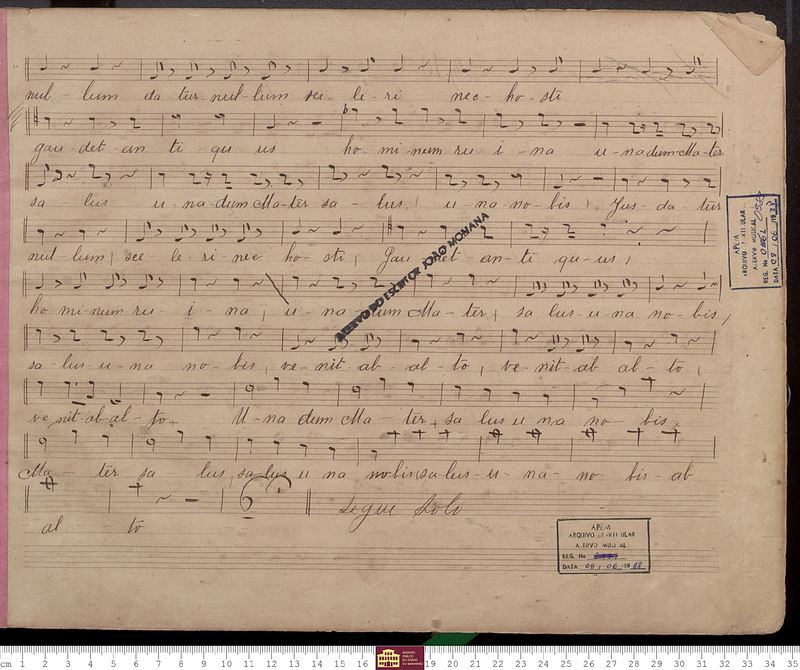 nul - lum da - tur nul - lum sce - le - ri nec - ho - sti
gau - det - an ti - qu us ho - mi - num ru - i - na u - na dum Ma - ter
sa - lus u - na - dum Ma - ter sa - lus, u - na - no - bis Jus - da - tur
nul lum, sce - le - ri - nec ho - sti, Gau - det - an - ti qu - us,
ho mi - num ru - i - na, u - na dum Ma - ter, sa lus - u - na no - bis,
sa - lus - u - na no - bis, ve - nit - ab - al - to, ve - nit - ab al - to,
ve nit - ab - al - to, U - na dum Ma - ter, sa lus u na no - bis,
Ma - ter sa lus, sa - lus u na no bis, sa - lus - u - na - no - bis - ab
al - to
Segue Solo
ACERVO DO ESCRITOR JOÃO MOHANA
APEM
ARQUIVO PARTICULAR
ACERVO MUSICAL
REG. No
DATA 08 / 06 / 19 88
APEM
ARQUIVO PARTICULAR
ACERVO MUSICAL
REG. No
DATA 08 / 06 / 19 88
cm 1 2 3 4 5 6 7 8 9 10 11 12 13 14 15 16 19 20 21 22 23 24 25 26 27 28 29 30 31 32 33 34 35 36
ARQUIVO
PÚBLICO
DO ESTADO
DO MARANHÃO